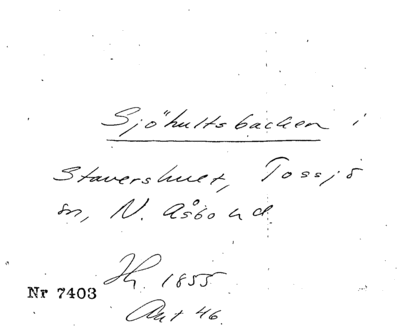 Sjöhultsbacken i
Stavershult, Tossjö
sn, N. Åsbo hd.
Hr. 1855
Nr 7403
Akt 46